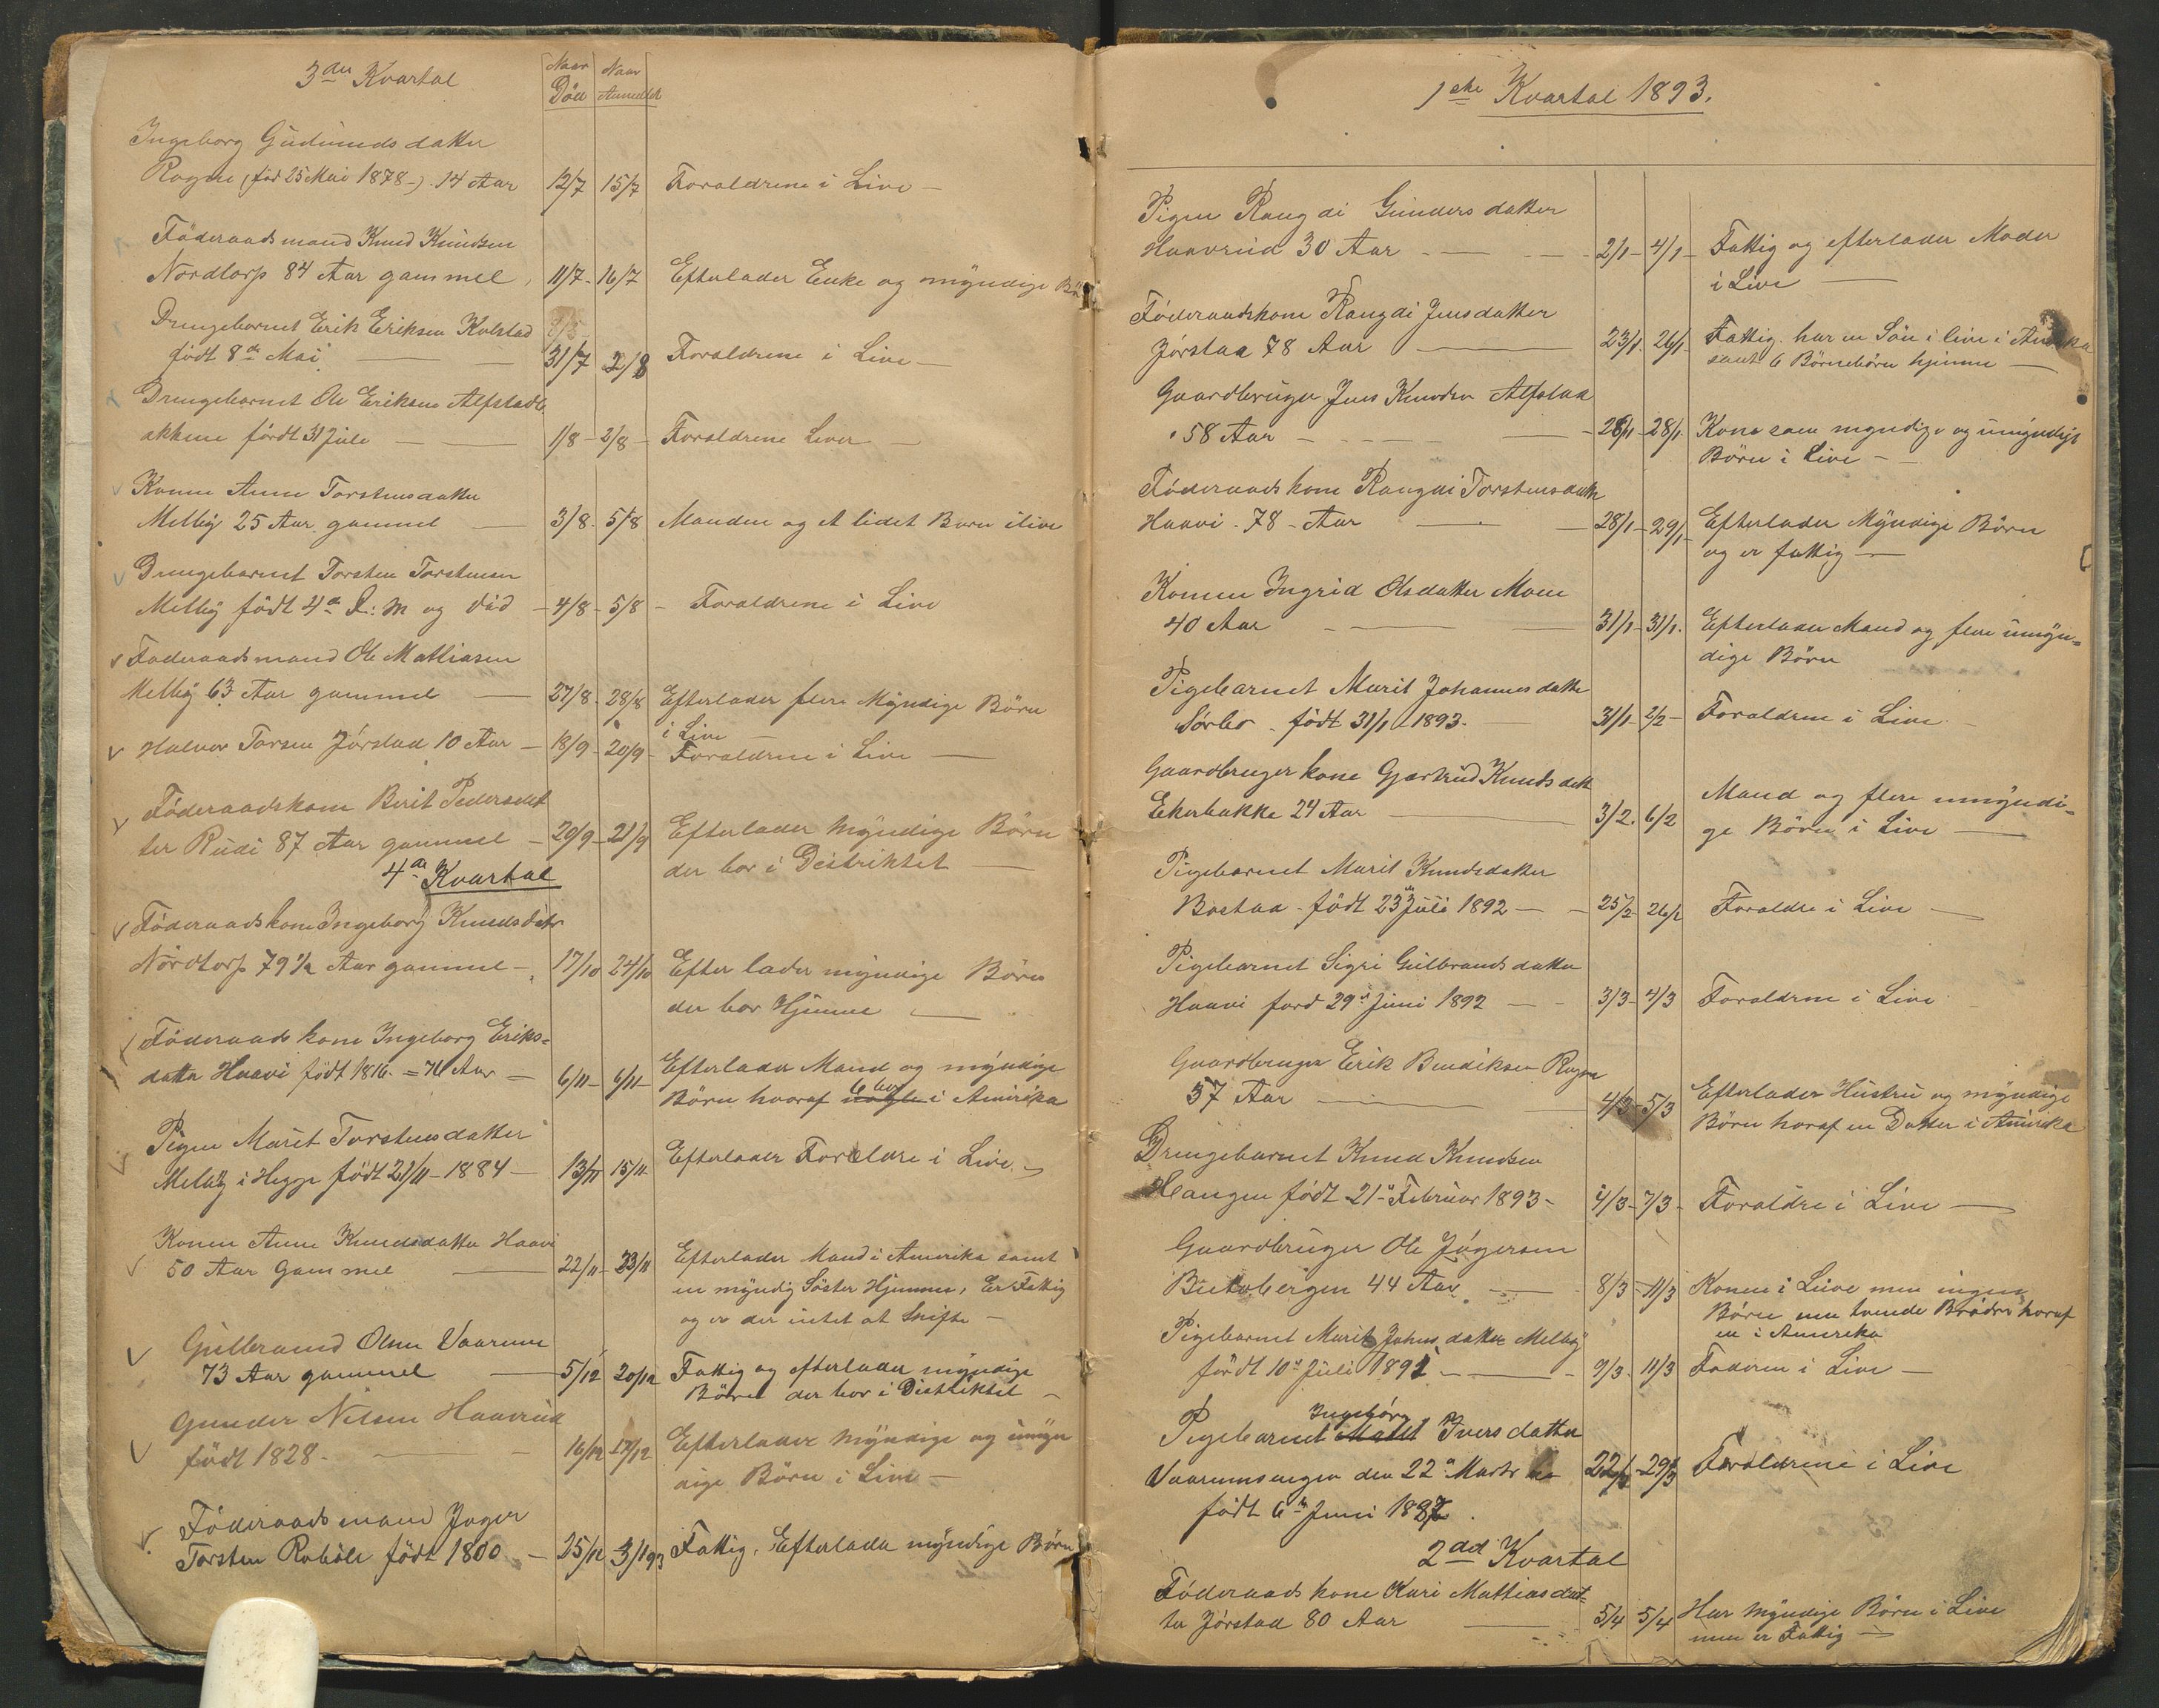 3die Kvartal
Naar Død
Naar Anmeldt
Ingeborg Gudmunds datter
Rogne (född 25 Mai 1878-) 14 Aar 12/7 15/7 Foraldrene i Live -
Föderaadsmand Knud Knudsen
Nordtorp 84 Aar gammel, 11/7 - 16/7 Efterlader Enke og myndige Bö
Drengebarnet Erik Eriksen Kolstad
födt 8de Mai 31/7 2/8 Foraldrene i Live -
Drengebarnet Ole Eriksen Alfstadb
akkene födt 31 Juli 1/8 - 2/8 - Foraldrene Lever -
Konen Anne Torstensdatter
Melby 25 Aar gammel 3/8 - 5/8 Manden og et lidet Barn ilive
Drengebarnet Torsten Torstensen
Melby födt 4de d: M og död - 4/8 - 5/8 - Foraldrene i Live
Föderaadsmand Ole Mattiasen
Melby 63 Aar gammel 27/8 - 28/8 Efterlader flere Myndige Börn
i Live -
Halvor Torsen Jörstad 10 Aar - 18/9 - 20/9 - Foraldrene i Live -
Föderaadskone Berit Pedersdat
ter Rudi 87 Aar gammel - 20/9 - 21/9 Efterlader Myndige Börn
der bor i Distriktet -
4de Kvartal
Föderaadskone Ingeborg Knudsdatr
Nordtorp 79 1/2 Aar gammel - 17/10 24/10 Efter lader myndige Börn
der bor Hjemme -
Föderaads kone Ingeborg Eriks=
datter Haavi födt 1816 = 76 Aar - 6/11 - 6/11 - Efterlader Mand og myndige
6 bor
Börn hvoraf nogle i Amirika
Pigen Marit Torstensdatter
Melby i Hegge födt 21/11 - 1884 - 13/11 15/11 Efterlader Foreldre i Live -
Konen Anne Knudsdatter Haavi
50 Aar Gammel 22/11 - 23/11 Efterlader Mand i Amerika samt
en myndig Söster Hjemme, Er Fattig
og er der intet at Skifte -
Gulbrand Olsen Vaarum
73 Aar gammel 5/12 20/12 Fattig og efterlader myndige
Börn der bor i Distriktet -
Gunder Nilsen Haavrud
födt 1828 - 16/12 17/12 Efterlader Myndige og umyn
dige Börn i Live -
Föderaads mand Joger
Torsten Roböle födt 1800 - 25/12 3/1 93 Fattig. Efterlader myndige Börn
1ste Kvartal 1893.
Pigen Rangdi Gunders datter
Haavrud 30 Aar - 2/1 - 4/1 - Fattig og efterlader Moder
i Live -
Föderaadskone Rangdi Jensdatter
Jörstad 78 Aar 23/1 26/1 Fattig. har en Sön i live i
samt 6 Börnebörn hjemme -
Gaardbruger Jens Knudsen Alfstad
58 Aar - 26/1 - 28/1. Kone som myndige og umyndige
Börn i Live -
Föderaads kone Rangdi Torstensdatter
Haavi - 78 - Aar 28/1 - 29/1 - Efterlader Myndige Börn
og er fattig -
Konen Ingrid Olsdatter Moen
40 Aar 31/1 - 31/1. Efterlader Mand og flere umyn=
dige Börn
Pigebarnet Marit Johannes datter
Sörbo - födt 31/1 1893. 31/1 - 2/2 - Foraldrene i Live -
Gaardbruger kone Gjertrud Knuds datt
Ekerbakke 24 Aar 3/2. 6/2 Mand og flere umyndi=
ge Börn i Live -
Pigebarnet Marit Knudsdatter
Bostad - födt 23de Juli 1892 - 25/2 - 26/2 Foraldre i Live -
Pigebarnet Sigri Gulbrands datter
Haavi ford 29de Juni 1892 - 3/3 - 4/3 Foraldrene i Live -
Gaardbruger Erik Bendiksen Rogne
57 Aar 4/3 - 5/3 Efterlader Hustru og myndige
Börn hvoraf en Datter i Amirika
Drengebarnet Knud Knudsen
Hangen födt 21de Februar 1893 - 4/3 - 7/3 - Foraldre i Live -
Gaardbruger Ole Jögersen
44 Aar 8/3 - 11/3 Konen i Live men ingen
Börn men tvende Brödre hvoraf
en i Amerika
Pigebarnet Marit Johns datter Melby
födt 10de Juli 1892 - 9/3. 11/3 Faderen i Live -
Ingebörg
Pigebarnet Marit Ivers datter
Vaarumsengen den 22de Marts 22/3 - 29/3 Foraldrene i Live
födt 6te Juni 1892.
2det Kvartal
Föderaads kone Kari Mattiasdat=
ter Jörstad 80 Aar 5/4 5/4 Har Myndige Börn i Live
men er Fattig -